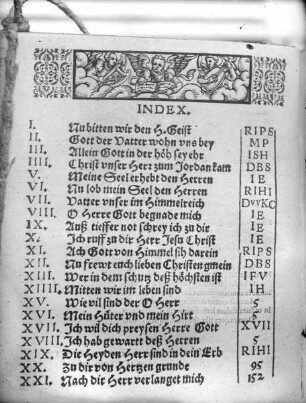 INDEX.
I. Nu bitten wir den H. Geist RIPS
II. Gott der Vatter wohn vns bey MP
III. Allein Gott in der höh sey ehr ISH
IIII. Christ vnser Herr zum Jordan kam DBS
V. Meine Seel erhebt den Herren IE
VI. Nu lob mein Seel den Herren RIHI
VII. Vatter vnser im Himmelreich DvvKC
VIII. O Herre Gott begnade mich IE
IX. Auß tieffer not schrey ich zu dir IE
X. Ich ruff zu dir Herr Jesu Christ IE
XI. Ach Gott von Himmel sih darein RIPS
XII. Nu frewt euch lieben Christen gmein DBS
XIII. Wer in dem schutz deß höchsten ist IFV
XIIII. Mitten wir im leben sind IH
XV. Wie vil sind der O Herr 5
XVI. Mein Hüter vnd mein Hirt 5
XVII. Ich wil dich preysen Herre Gott XVII
XVIII. Ich hab gewartt deß Herren 5
XIX. Die Heyden Herr sind in dein Erb RIHI
XX. Zu dir von Hertzen grunde 95
XXI. Nach dir Herr verlanget mich 152